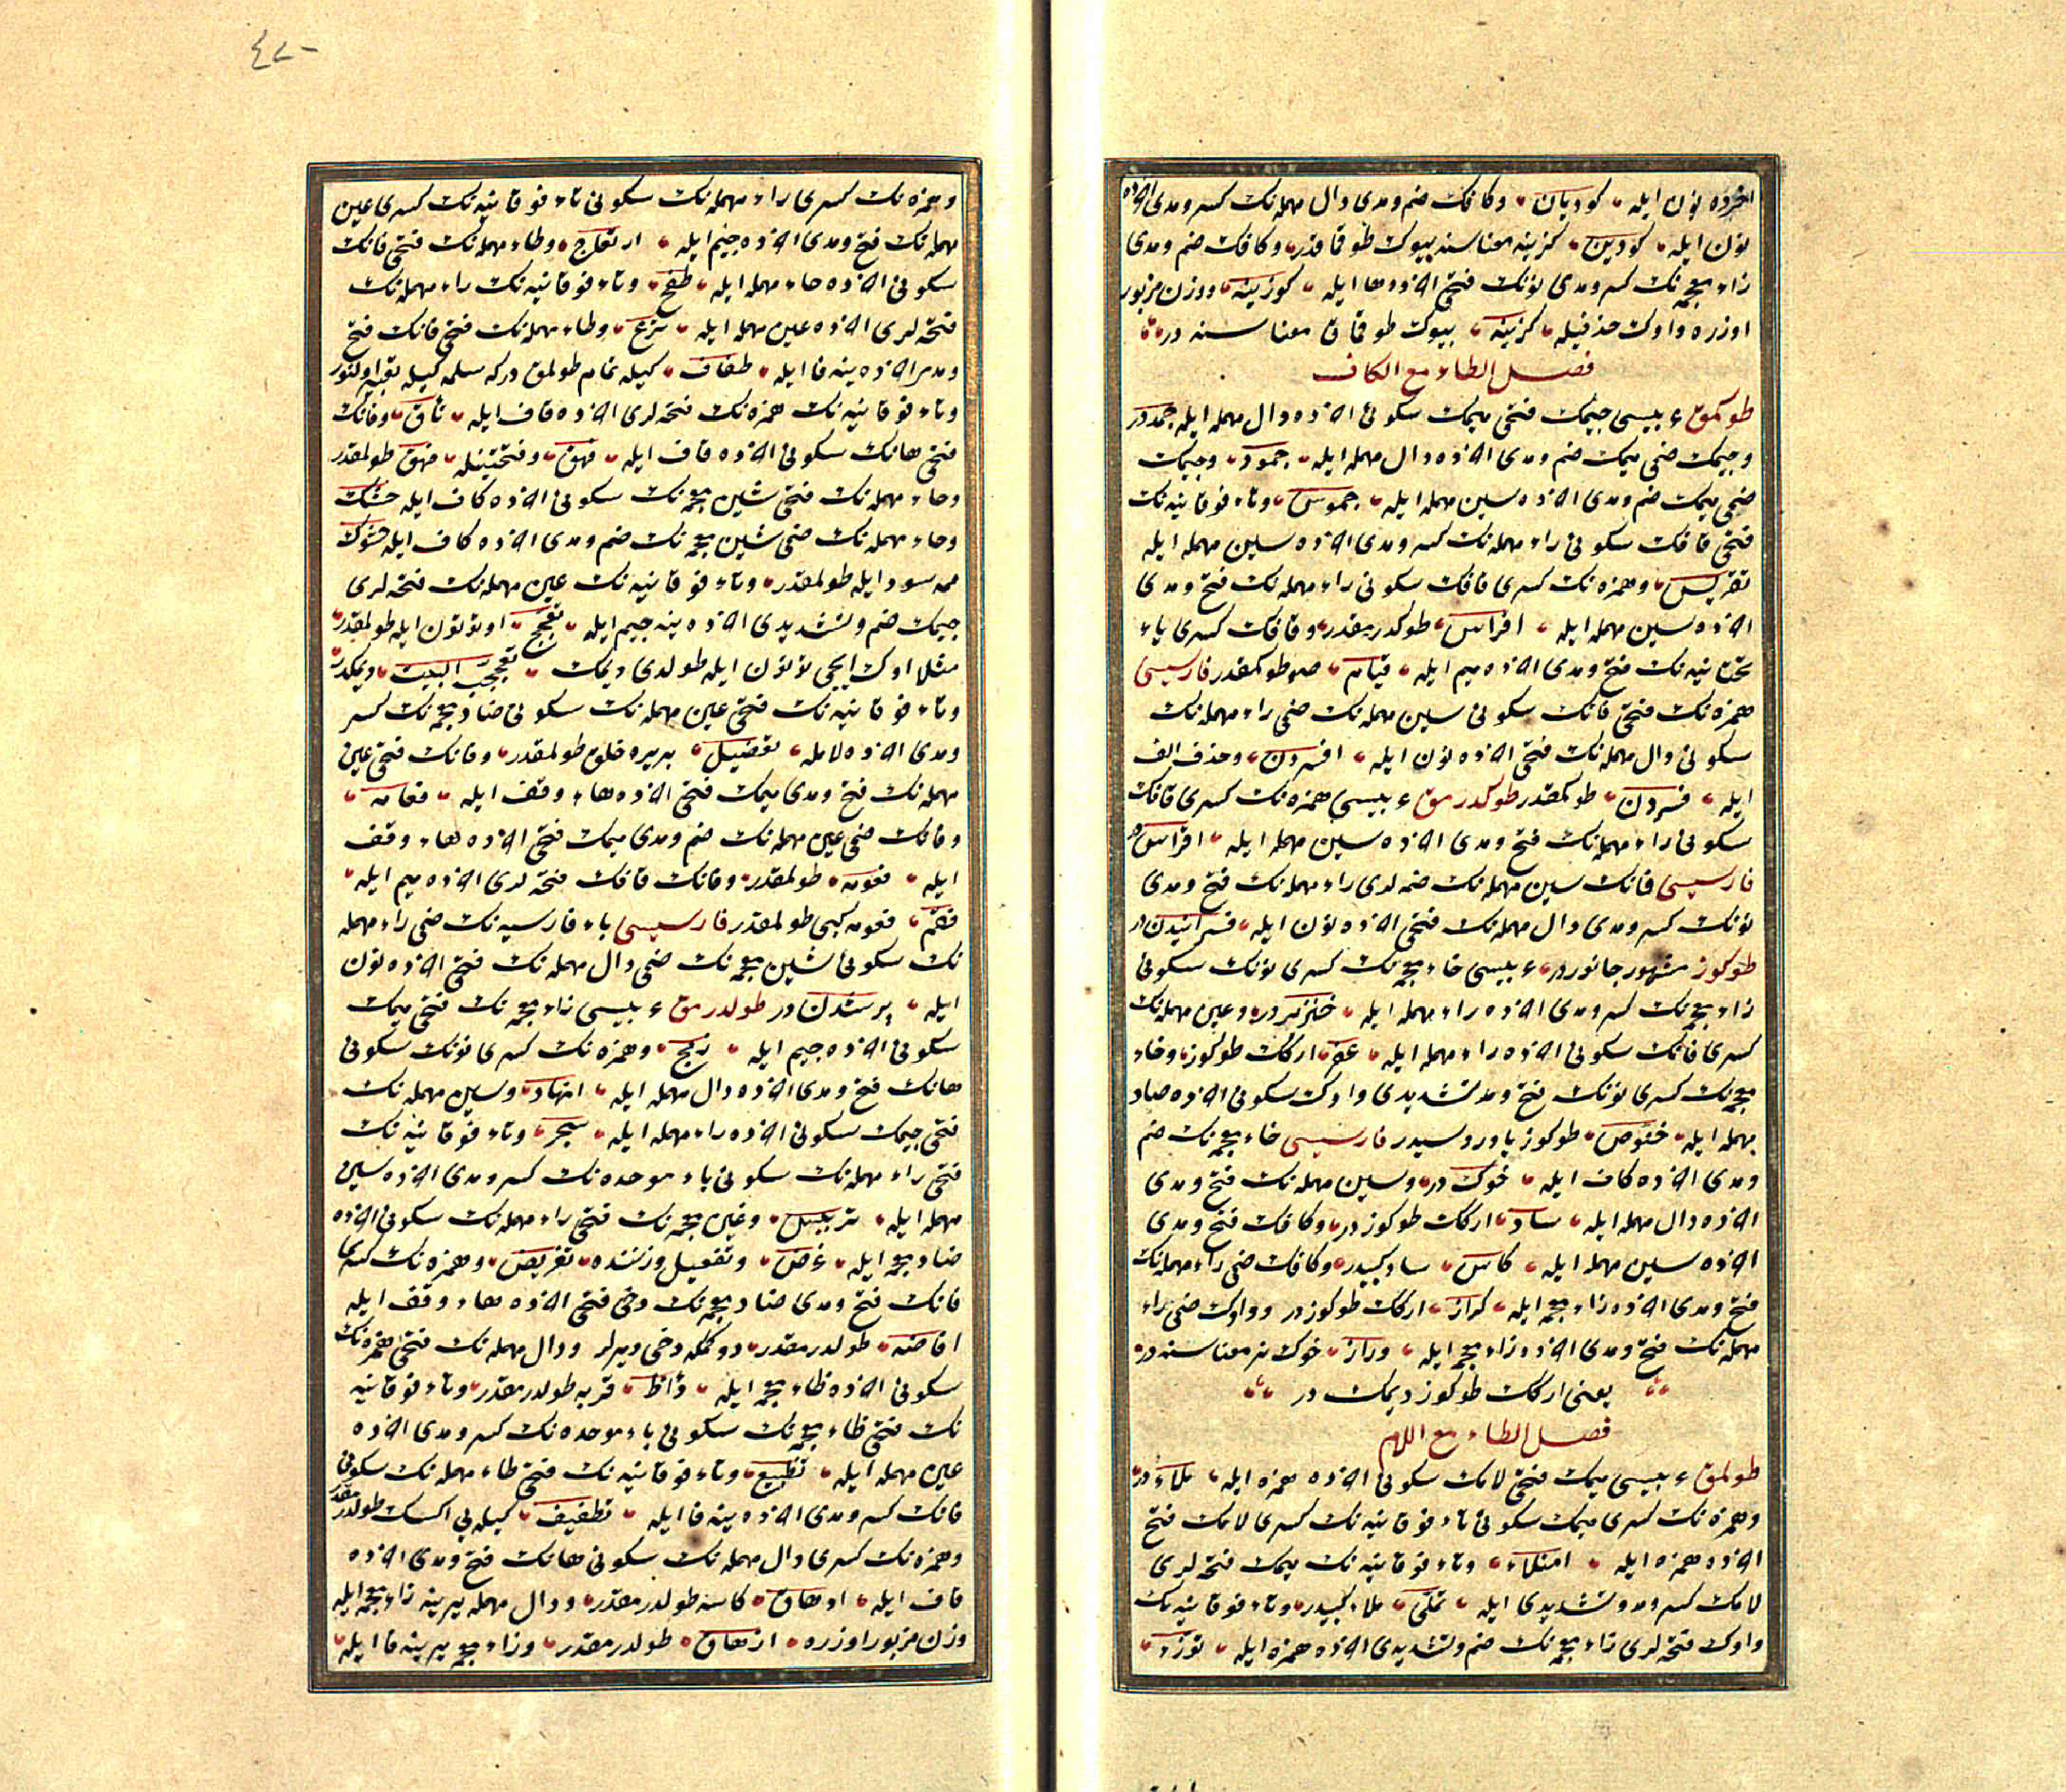 اخرده نون ایله کودیان وکافک ضم ومدی دال مهمله نک کسر ومدی اخرده
نون ایله کودین کزینه معناسنه بیوک طوقماقدر وکافک ضم ومدی
زاء معجمه نک کسر ومدی نونک فتحی اخرده ها ایله کوزینه ووزن مزبور
اوزره واوک حذفیله کزینه بیوک طوقماق معناسنه در
فصل الطاء مع الکاف
طوکمق عربیسی جیمک فتحی میمک سکونی اخرده دال مهمله ایله جمددر
وجیمک ضمی میمک ضم ومدی اخرده دال مهمله ایله جمود وجیمک
ضمی میمک ضم ومدی اخرده سین مهمله ایله جموس وتاء فوقانیه نک
فتحی قافک سکونی راء مهمله نک کسر ومدی اخرده سین مهمله ایله
تقریس وهمزه نک کسری قافک سکونی راء مهمله نک فتح ومدی
اخرده سین مهمله ایله اقراس طوکدرمقدر وقافک کسری یاء
تحتانیه نک فتح ومدی اخرده میم ایله قیام صو طوکمقدر فارسیسی
همزه نک فتحی فانک سکونی سین مهمله نک ضمی راء مهمله نک
سکونی دال مهمله نک فتحی اخرده نون ایله افسردن وحذف الف
ایله فسردن طوکمقدر طوکدرمق عربیسی همزه نک کسری قافک
سکونی راء مهمله نک فتح ومدی اخرده سین مهمله ایله اقراس در
فارسیسی فانک سین مهمله نک ضمه لری راء مهمله نک فتح ومدی
نونک کسر ومدی دال مهمله نک فتحی اخرده نون ایله فسرانیدن در
طوکوز مشهور جانوردر عربیسی خاء معجمه نک کسری نونک سکونی
زاء معجمه نک کسر ومدی اخرده راء مهمله ایله خنزیردر وعین مهمله نک
کسری فانک سکونی اخرده راء مهمله ایله عفر ارکک طوکوز وخاء
معجمه نک کسری نونک فتح ومد تشدیدی واوک سکونی اخرده صاد
مهمله ایله خنوص طوکوز یاوروسیدر فارسیسی خاء معجمه نک ضم
ومدی اخرده کاف ایله خوک در وسین مهمله نک فتح ومدی
اخرده دال مهمله ایله ساد ارکک طوکوزدر وکافک فتح ومدی
اخرده سین مهمله ایله کاس ساد کبیدر وکافک ضمی راء مهمله نک
فتح ومدی اخرده زاء معجمه ایله کراز ارکک طوکوزدر وواوک ضمی راء
مهمله نک فتح ومدی اخرده زاء معجمه ایله وراز خوک نر معناسنه در
یعنی ارکک طوکوز دیمک در
فصل الطاء مع اللام
طولمق عربیسی میمک فتحی لامک سکونی اخرده همزه ایله ملاء در
وهمزه نک کسری میمک سکونی تاء فوقانیه نک کسری لامک فتح
اخرده همزه ایله امتلاء وتاء فوقانیه نک میمک فتحه لری
لامک کسر ومد وتشدیدی ایله تملی ملاء کبیدر وتاء فوقانیه نک
واوک فتحه لری زاء معجمه نک ضم وتشدیدی اخرده همزه ایله توزء
٤٢٠
وهمزه نک کسری راء مهمله نک سکونی تاء فوقانیه نک کسری عین
مهمله نک فتح ومدی اخرده جیم ایله ارتعاج وطاء مهمله نک فتحی فانک
سکونی اخرده حاء مهمله ایله طفح وتاء فوقانیه نک راء مهمله نک
فتحه لری اخرده عین مهمله ایله ترع وطاء مهمله نک فتحی فانک فتح
ومدی اخرده ینه فا ایله طفاف کیله تمام طولمق درکه سلمه کیله تعبیر اولنور
وتاء فوقانیه نک همزه نک فتحه لری اخرده قاف ایله تأق وفانک
فتحی هانک سکونی اخرده قاف ایله فهق وفتحتینله فهق طولمقدر
وحاء مهمله نک فتحی شین معجمه نک سکونی اخرده کاف ایله حشک
وحاء مهمله نک ضمی شین معجمه نک ضم ومدی اخرده کاف ایله حشوک
ممه سود ایله طولمقدر وتاء فوقانیه نک عین مهمله نک فتحه لری
جیمک ضم وتشدیدی اخرده ینه جیم ایله تعجج او توتون ایله طولمقدر
مثلا اوک ایچی توتون ایله طولدی دیمک تعجج البیت دیمکدر
وتاء فوقانیه نک فتحی عین مهمله نک سکونی ضاد معجمه نک کسر
ومدی اخرده لامله تعضیل بر یره خلق طولمقدر وفانک فتحی عین
مهمله نک فتح ومدی میمک فتحی اخرده هاء وقف ایله فعامه
وفانک ضمی عین مهمله نک ضم ومدی میمک فتحی اخرده هاء وقف
ایله فعومه طولمقدر وفانک قافک فتحه لری اخرده میم ایله
فقم فعومه کبی طولمقدر فارسیسی باء فارسیه نک ضمی راء مهمله
نک سکونی شین معجمه نک ضمی دال مهمله نک فتحی اخرده نون
ایله پرشدن در طولدرمق عربیسی زاء معجمه نک فتحی میمک
سکونی اخرده جیم ایله زمج وهمزه نک کسری نونک سکونی
هانک فتح ومدی اخرده دال مهمله ایله انهاد وسین مهمله نک
فتحی جیمک سکونی اخرده راء مهمله ایله سجر وتاء فوقانیه نک
فتحی راء مهمله نک سکونی باء موحده نک کسر ومدی اخرده سین
مهمله ایله تربیس وغین معجمه نک فتحی راء مهمله نک سکونی اخرده
ضاد معجمه ایله غرض وتفعیل وزننده تغریض وهمزه نک کسری
فانک فتح ومدی ضاد معجمه نک دخی فتحی اخرده هاء وقف ایله
افاضه طولدرمقدر دوکمکه دخی دیرلر ودال مهمله نک فتحی همزه نک
سکونی اخرده ظاء معجمه ایله دأظ قربه طولدرمقدر وتاء فوقانیه
نک فتحی ظاء معجمه نک سکونی باء موحده نک کسر ومدی اخرده
عین مهمله ایله تظبیع وتاء فوقانیه نک فتحی طاء مهمله نک سکونی
فانک کسر ومدی اخرده ینه فا ایله تطفیف کیله یی اکسک طولدرمقدر
وهمزه نک کسری دال مهمله نک سکونی هانک فتح ومدی اخرده
قاف ایله ادهاق کاسه طولدرمقدر ودال مهمله یرینه زاء معجمه ایله
وزن مزبور اوزره ازهاق طولدرمقدر وزاء معجمه یرینه فا ایله